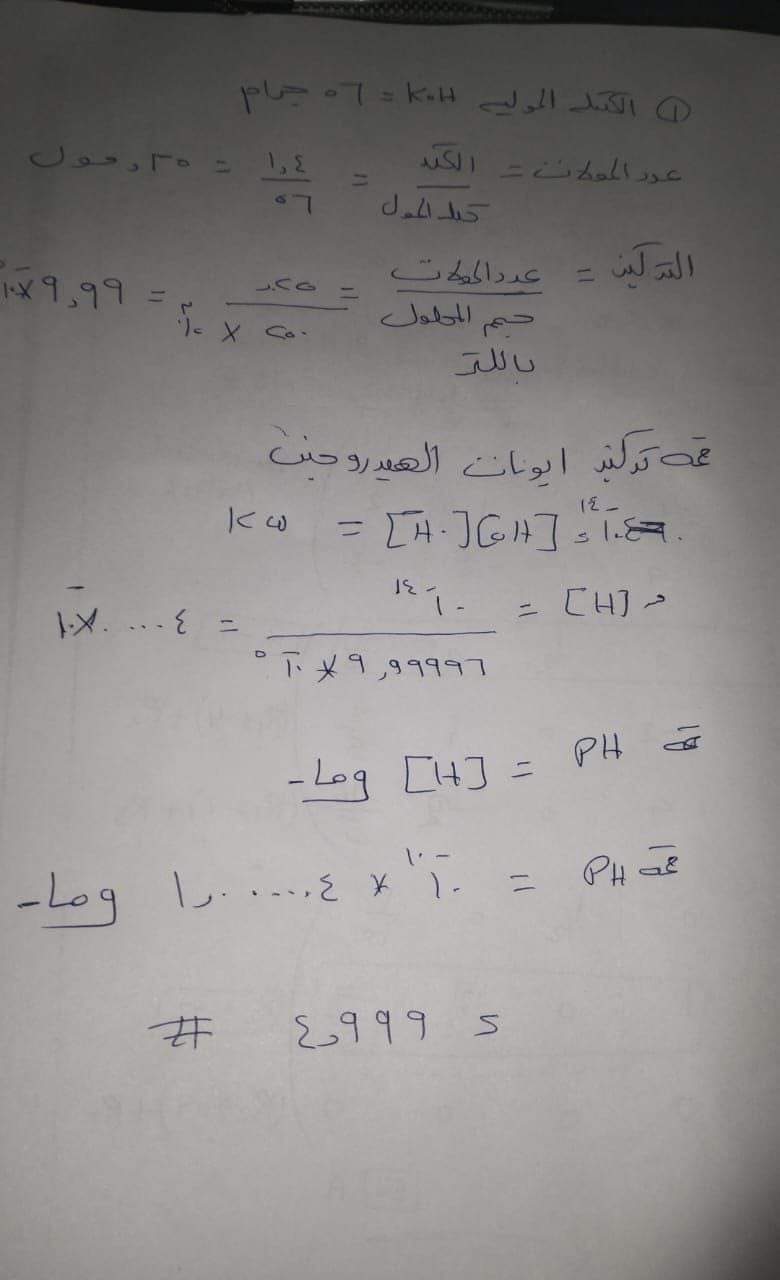 ① الكتلة المولية KOH = ٥٦ جرام
عدد المولات = الكتلة / كتلة المول = ١,٤ / ٥٦ = ٢٥,٠ مول
التركيز = عدد المولات / حجم المحلول باللتر = ٠,٢٥ / ٢٥٠ × ١٠ = ٩,٩٩ × ١٠
تركيز ايونات الهيدروجين
Kw = [H][OH] = ١٠⁻¹⁴
[H] = ١٠⁻¹⁴ / ٩,٩٩٩٩٦ × ١٠⁻⁵ =
PH = - لو [H]
PH = - لو ١,٠٠٠٠٠٤ × ١٠⁻¹⁰
= ٤,٩٩٩ #